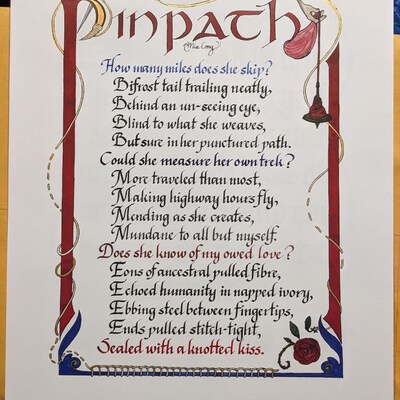 Pinpath
How many miles does she skip?
Bifrost tail trailing neatly,
Behind an un-seeing eye,
Blind to what she weaves,
But sure in her punctured path.
Could she measure her own trek?
More traveled than most,
Making highway hours fly,
Mending as she creates,
Mundane to all but myself.
Does she know of my owed love?
Eons of ancestral pulled fibre,
Echoed humanity in napped ivory,
Ebbing steel between fingertips,
Ends pulled stitch-tight,
Sealed with a knotted kiss.